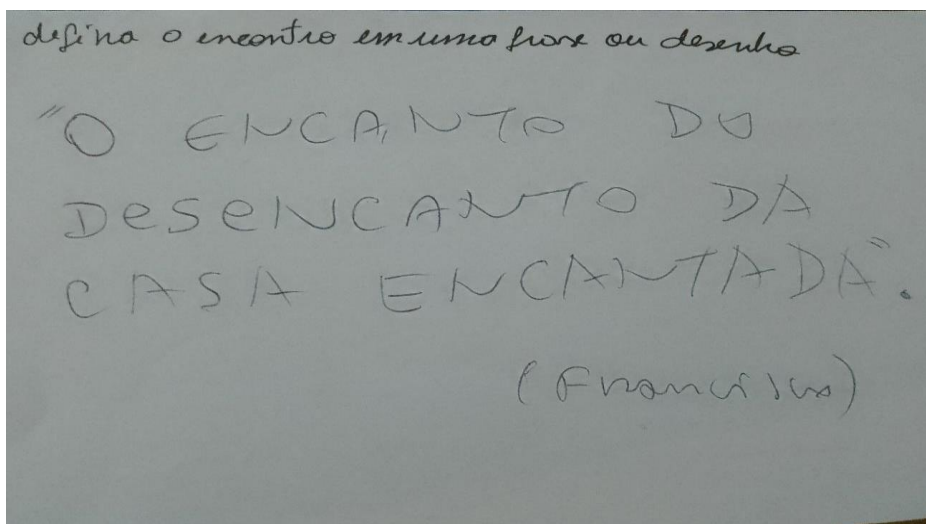 defina o encontro em uma frase ou desenho
"O ENCANTO DO
DESENCANTO DA
CASA ENCANTADA".
(Francisco)